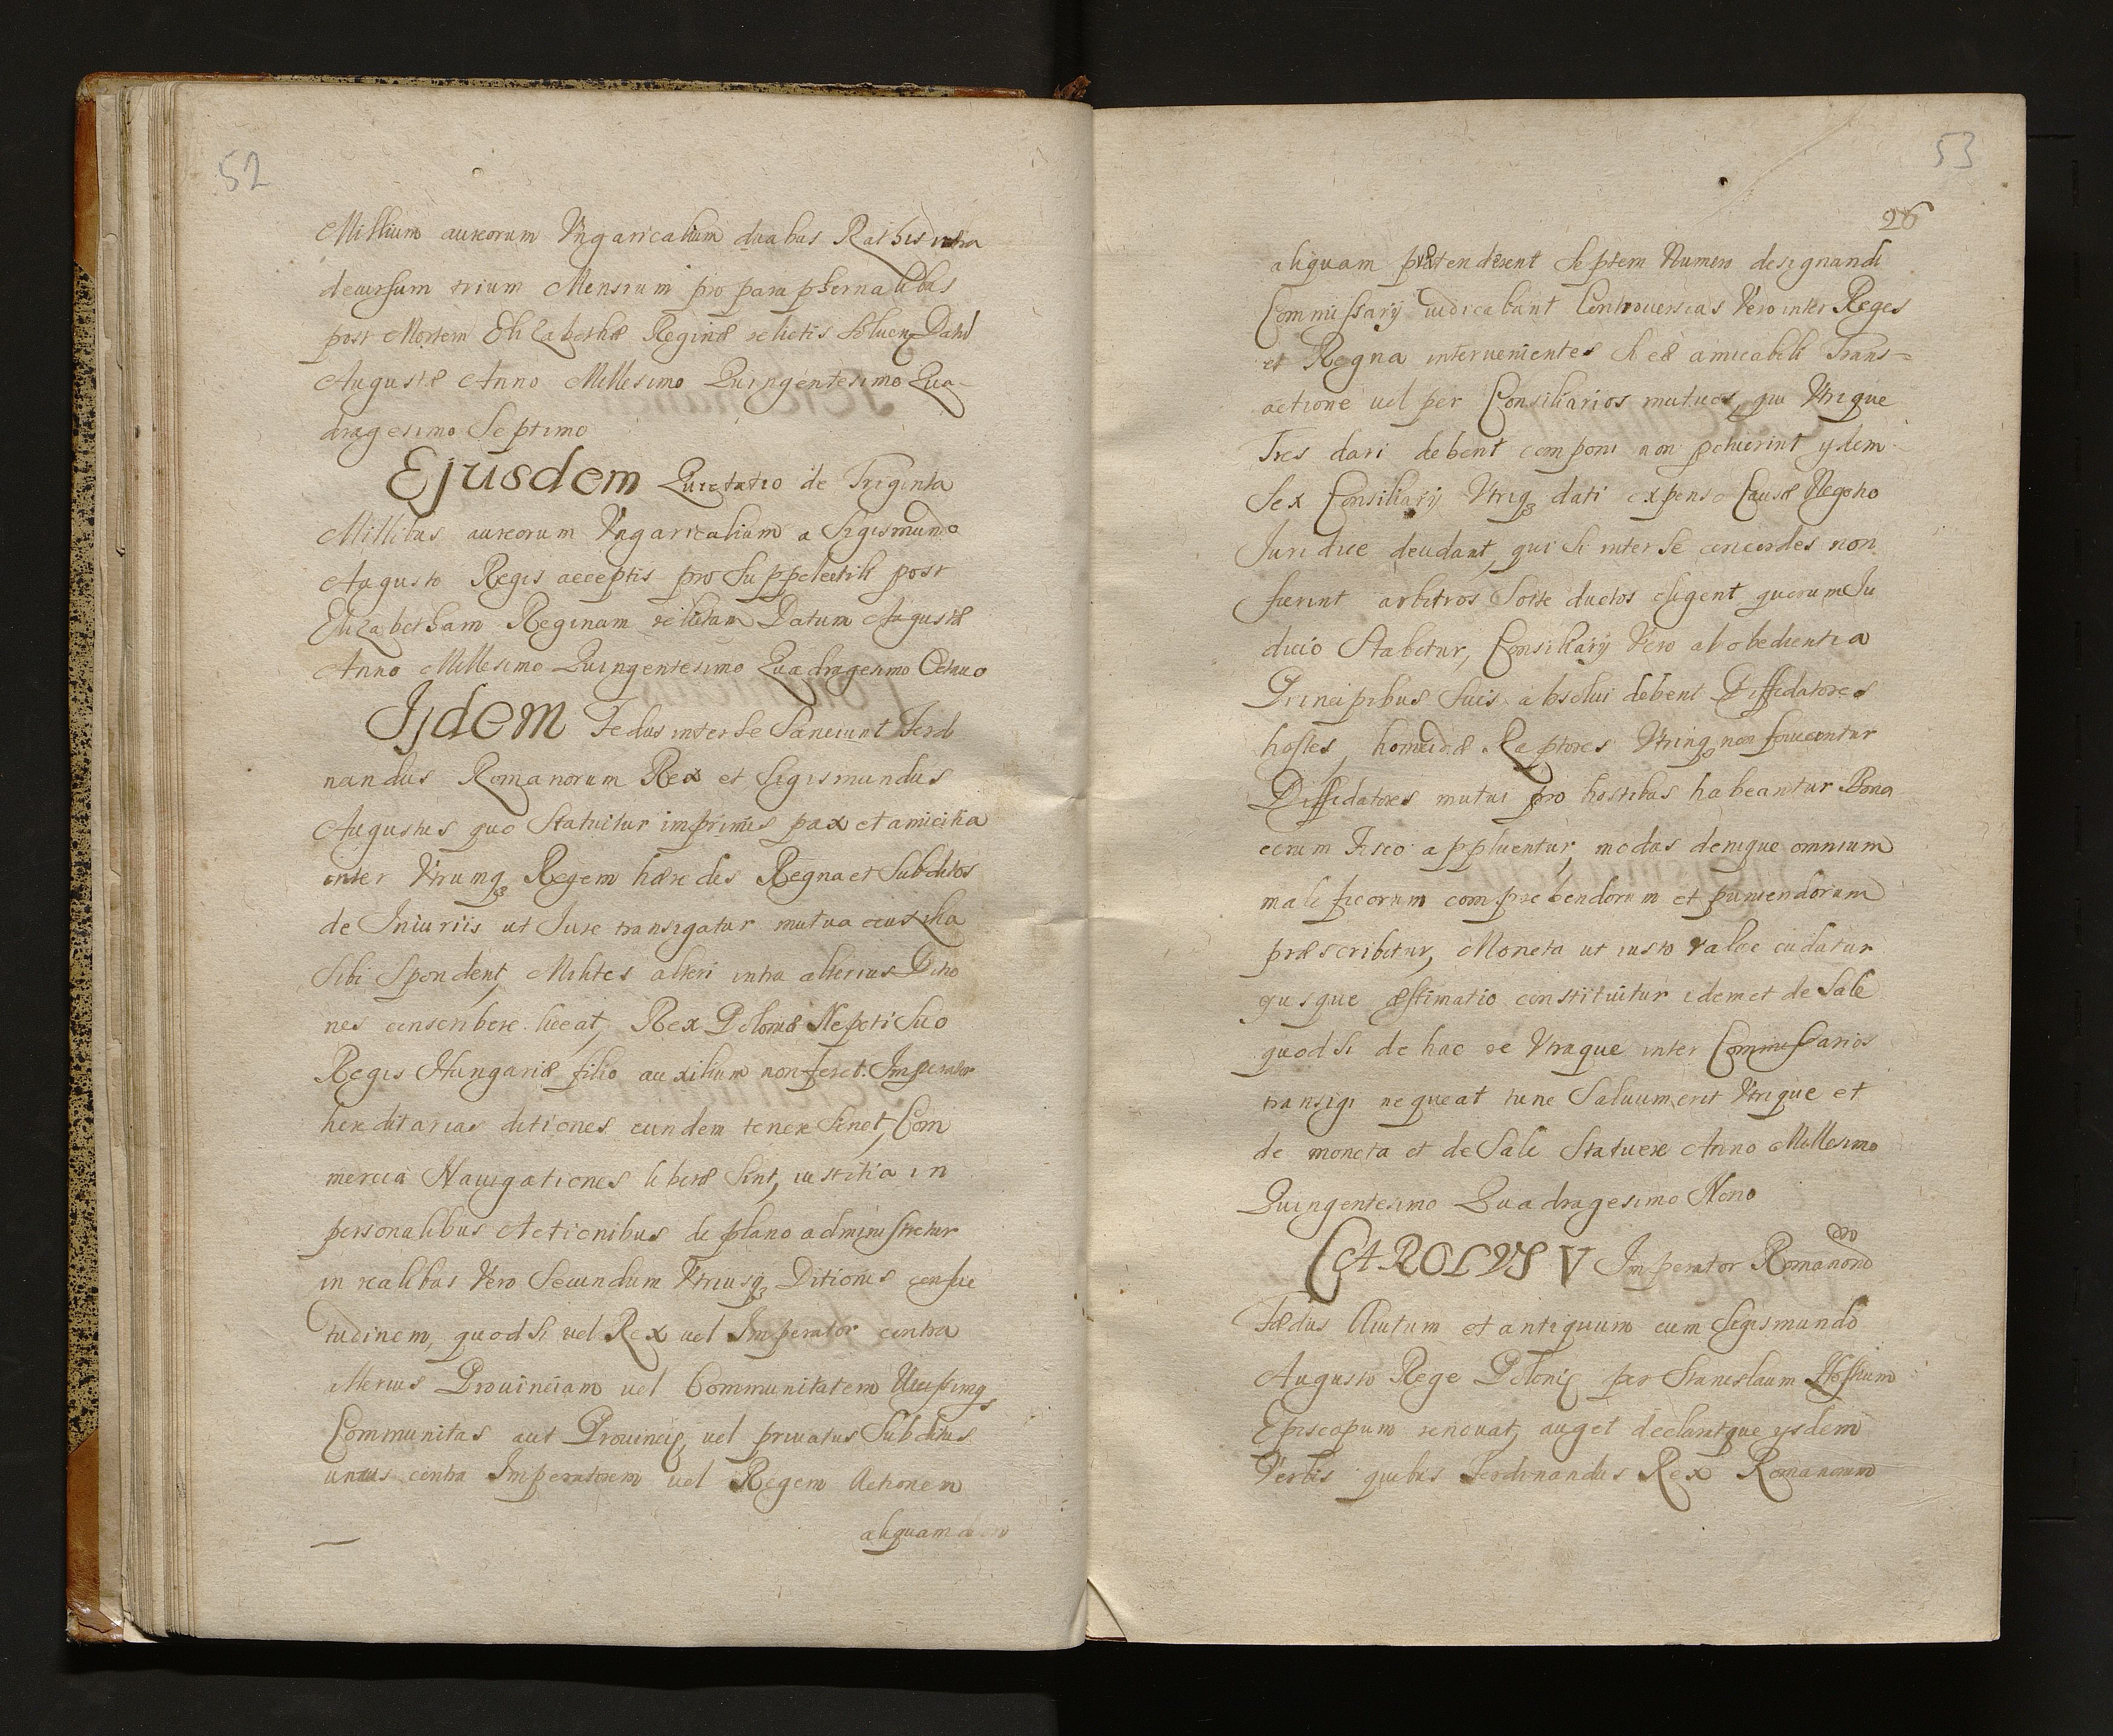 52
Millium aureorum Vngaricalium duabus Rathis intra
decursum trium Mensium pro paraphernalibus
post Mortem Elizabethæ Reginæ relictis Soluen Dat
Augustæ Anno Millesimo Quingentesimo Qua-
dragesimo Septimo
Ejusdem Quietatio de Triginta
Millibus aureorum Vngaricalium a Sigismundo
Augusto Regis acceptis pro Suppelectili post
Elizabetham Reginam relictam Datum Augustæ
Anno Millesimo Quingentesimo Quadragesimo Octauo
Ijdem Fedus inter Se Sanciunt Ferd
nandus Romanorum Rex et Sigismundus
Augustus quo Statuitur imprimis pax et amicitia
inter Vtrumq Regem hæredes Regna et Subditos
de Iniuriis ut Iure transigatur mutua auxilia
Sibi Spondent, Milites alteri intra alterius Ditio
nes conscribere liceat, Rex Poloniæ Nepoti Suo
Regis Hungariæ filio auxilium non feret. Imperator
hereditarias ditiones eundem tenere Sinet, Com
mercia Nauigationes liberæ Sint, iustitia in
personalibus Actionibus de plano administretur
in realibus Vero Secundum Vtriusq Ditionis consue
tudinem, quod Si uel Rex uel Imperator contra
alterius Prouinciam uel Communitatem
Communitas aut Prouincię, uel priuatus Subditus
unius contra Imperatorem uel Regem Actionem
aliquam
53
26
aliquam prætenderent Septem Numero designandi
Commissarij iudicabunt Controuersias Vero inter Reges
et Regna interuenientes Si eæ amicabili Trans-
actione uel per Consiliarios mutuos, qui Vtrique
Tres dari debent componi non potuerint ysdem
Sex Consiliarij Vtriq dati expenso Causæ Negotio
Juri dice deudant, qui Si inter Se concordes non
fuerint arbitros Sorte ductos eligent quorum Ju
dicio Stabitur, Consiliarij Vero ab obedientia
Principibus Suis absolui debent Diffidatores
hostes, homicidæ Raptores Vtrinq non foueantur
Diffidatores mutui pro hostibus habeantur Bona
eorum Fisco appluentur, modus denique omnium
maleficorum comprehendorum et puniendorum
præscribitur, Moneta ut iusto valore cudatur
eiusque æstimatio constituitur idem et de Sale
quod Si de hac re Vtraque inter Commissarios
transigi nequeat tunc Saluum erit Vtrique et
de moneta et de Sale Statuere Anno Millesimo
Quingentesimo Quadragesimo Nono
CAROLVS V Imperator Romanorū
Fædus Auitum et antiquum cum Sigismundo
Augusto Rege Polonię per Stanislaum Hossium
Episcopum renouat, auget declaratque ysdem
Verbis quibus Ferdinandus Rex Romanorum